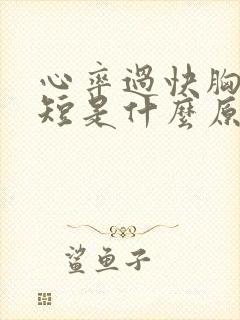 心率過快胸
短是什麼原
鯊魚子